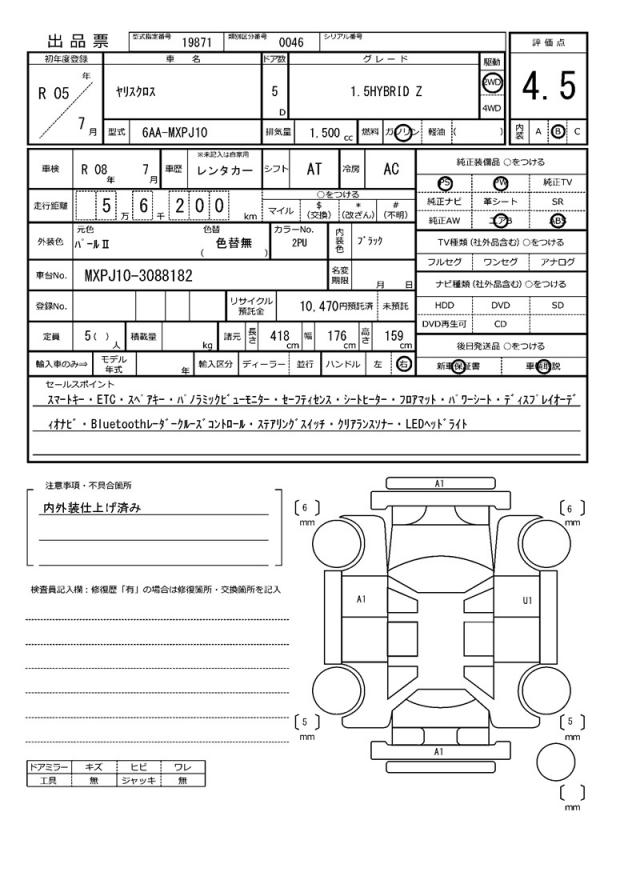 出品票 型式指定番号 19871 類別区分番号 0046 シリアル番号
評価点
4.5
内装 A B C
初年度登録 車名 ドア数 グレード 駆動
R 05 年 7 月 ヤリスクロス 5 D 1.5HYBRID Z 2WD 4WD
型式 6AA-MXPJ10 排気量 1.500 cc 燃料 ガソリン 軽油 ( )
車検 R 08 年 7 月 車歴 ※未記入は自家用 レンタカー シフト AT 冷房 AC
走行距離 5 万 6 千 2 0 0 km
○をつける
マイル $ (交換) * (改ざん) # (不明)
外装色 元色 パールⅡ 色替 色替無 ( ) カラーNo. 2PU 内装色 ブラック
車台No. MXPJ10-3088182 名変期限 月 日
登録No. リサイクル預託金 10,470円預託済 未預託
定員 5( ) 人 積載量 kg 諸元 長さ 418 cm 幅 176 cm 高さ 159 cm
輸入車のみ⇒ モデル年式 年 輸入区分 ディーラー 並行 ハンドル 左 右
純正装備品 ○をつける
PS PW 純正TV
純正ナビ 革シート SR
純正AW エアB ABS
TV種類(社外品含む)○をつける
フルセグ ワンセグ アナログ
ナビ種類(社外品含む)○をつける
HDD DVD SD
DVD再生可 CD
後日発送品 ○をつける
新車保証書 車輌取説
セールスポイント
スマートキー・ETC・スペアキー・パノラミックビューモニター・セーフティセンス・シートヒーター・フロアマット・パワーシート・ディスプレイオーデ
ィオナビ・Bluetoothレーダークルーズコントロール・ステアリングスイッチ・クリアランスソナー・LEDヘッドライト
注意事項・不具合箇所
内外装仕上げ済み
検査員記入欄:修復歴「有」の場合は修復箇所・交換箇所を記入
ドアミラー キズ ヒビ ワレ
工具 無 ジャッキ 無
A1
〔 6 〕 mm
〔 6 〕 mm
A1
U1
〔 5 〕 mm
〔 5 〕 mm
A1
〔 〕 mm